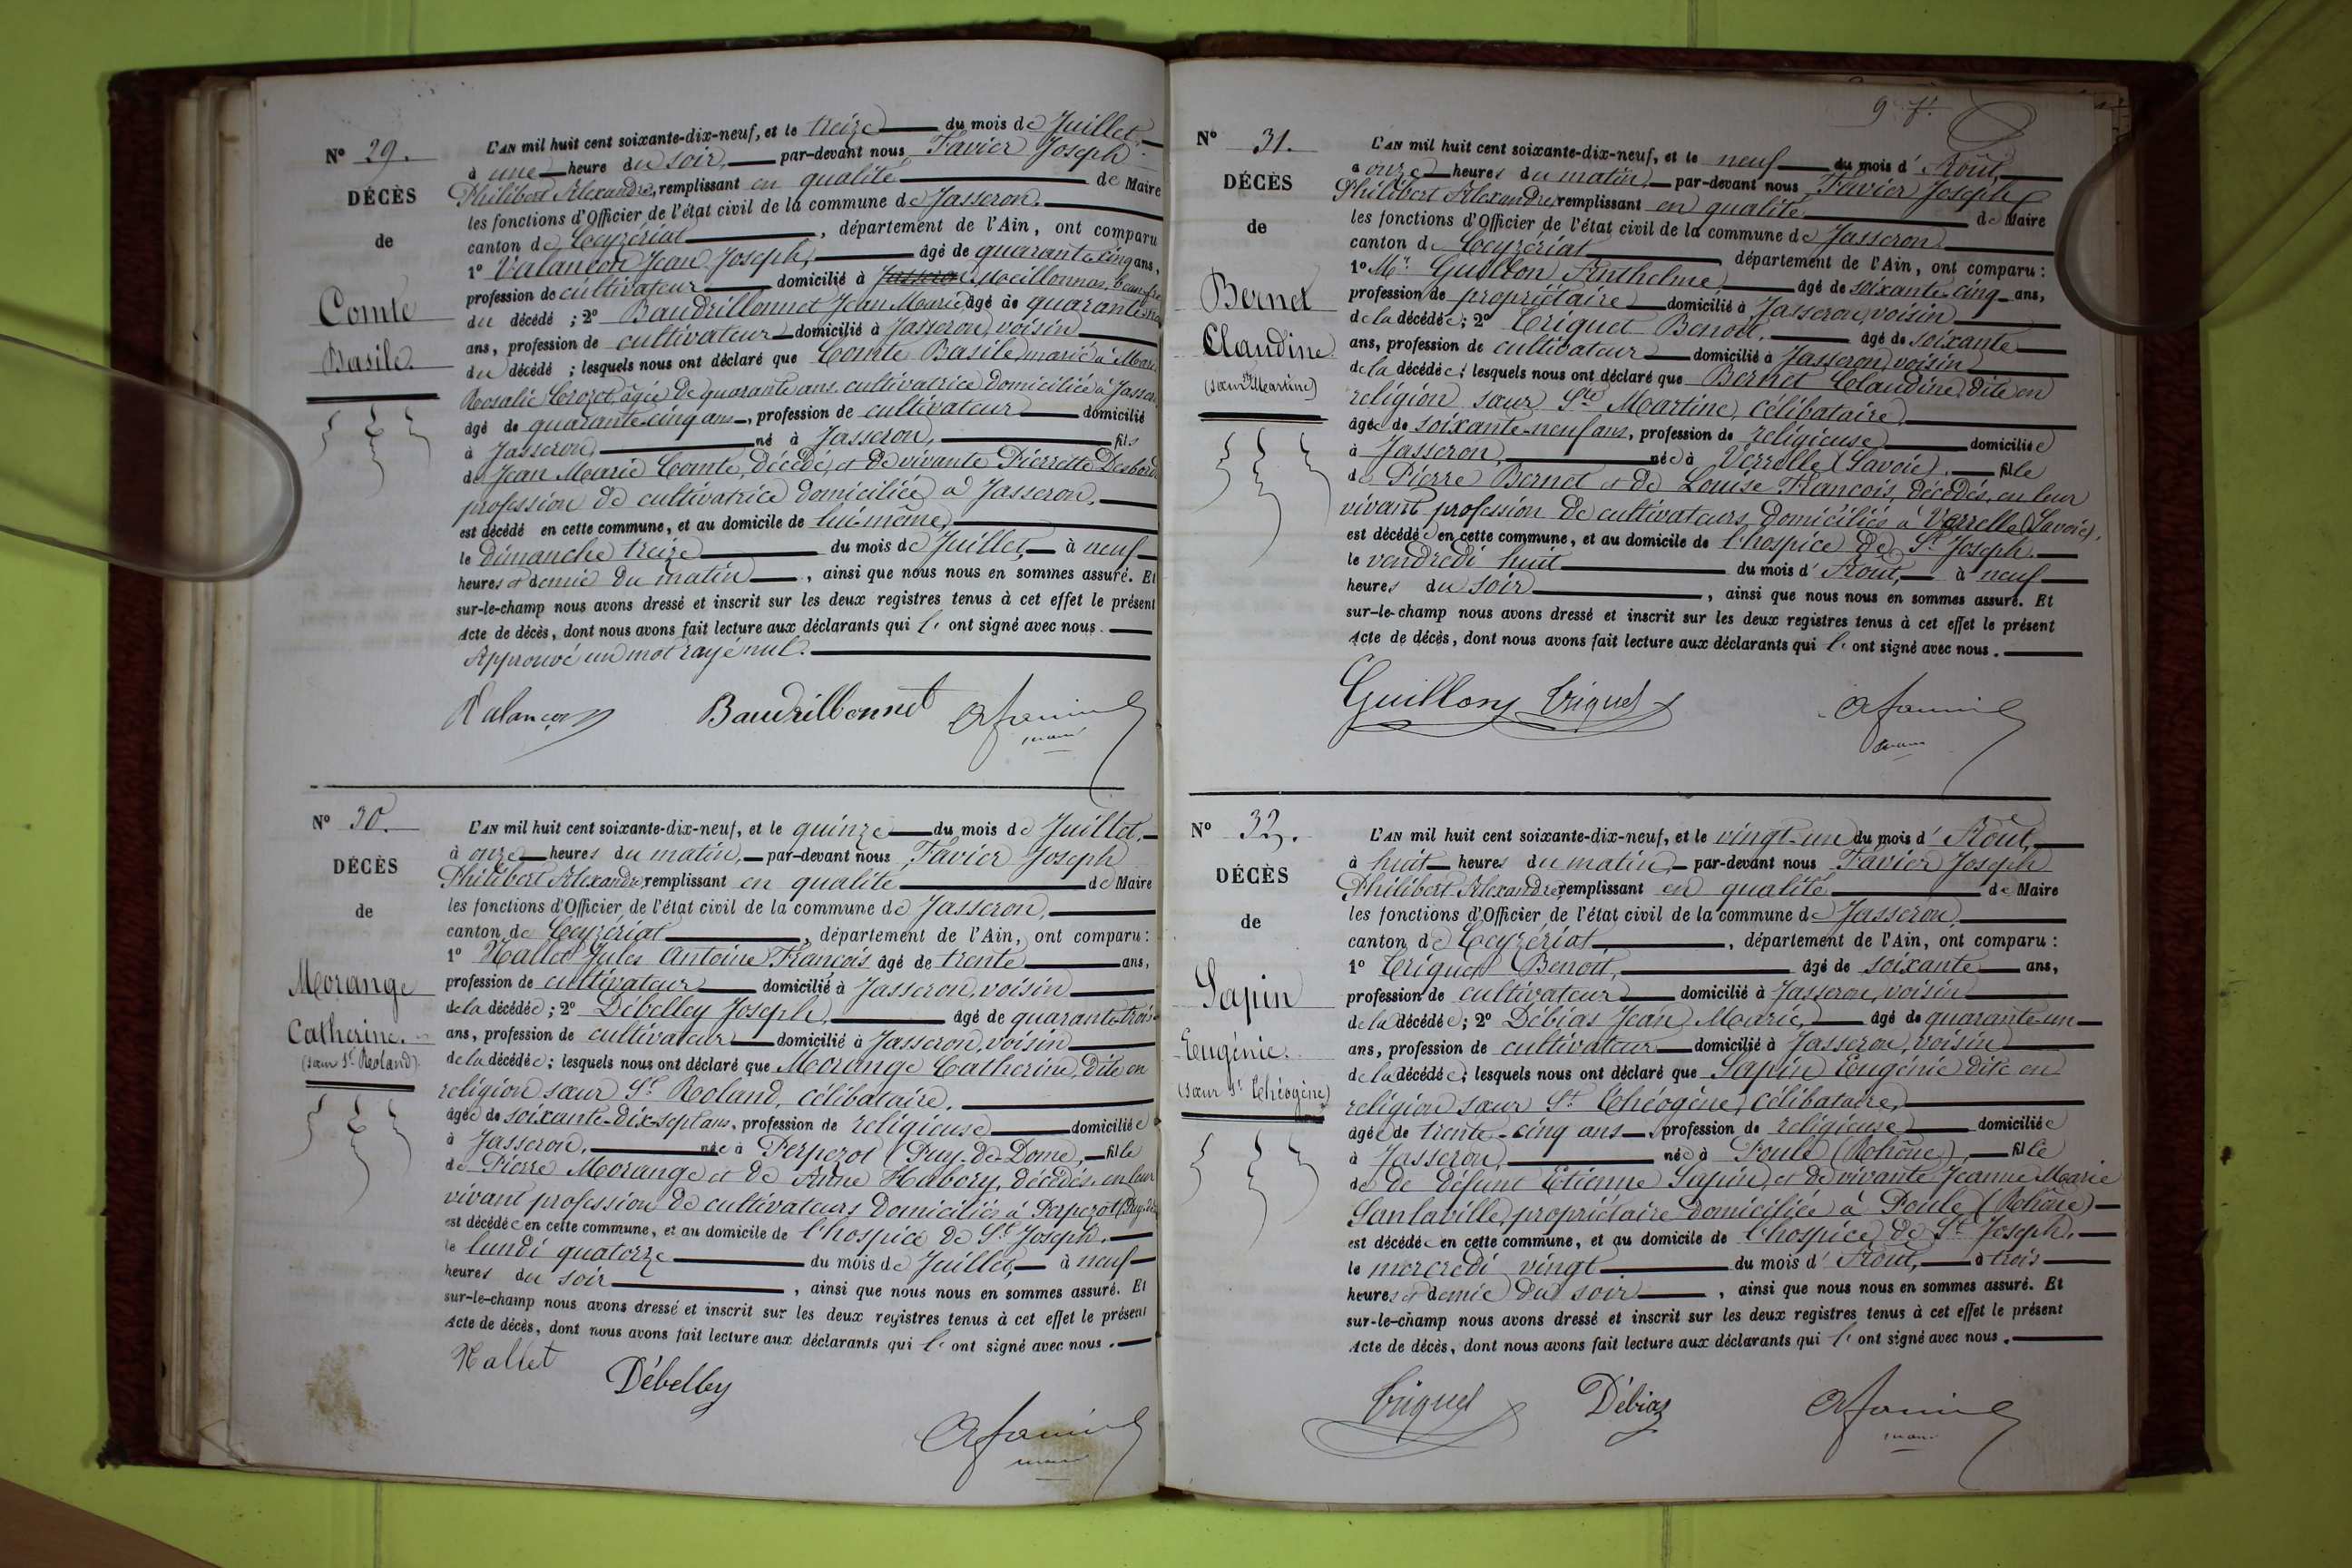 N° 29.
DÉCÈS
de
Comte
Basile.
L'AN mil huit cent soixante-dix-neuf, et le treize du mois de Juillet
à une heure du soir, par-devant nous Favier Joseph
Philibert Alexandre, remplissant en qualité de Maire
les fonctions d'Officier de l'état civil de la commune de Jasseron.
canton de Ceyzériat, département de l'Ain, ont comparu
1° Valançon Jean Joseph, âgé de quarante cinq ans,
profession de cultivateur domicilié à Jasseron Meillonnas, beau frère
du décédé ; 2° Baudrillonnet Jean Marie, âgé de quarante
ans, profession de cultivateur domicilié à Jasseron, voisin
du décédé ; lesquels nous ont déclaré que Comte Basile, marié à Marie
Rosalie Crozet, âgée de quarante ans, cultivatrice domiciliée à Jasseron
âgé de quarante-cinq ans, profession de cultivateur domicilié
à Jasseron, né à Jasseron, fils
de Jean Marie Comte, décédé, et de vivante Pierrette Desbord
profession de cultivatrice domiciliée à Jasseron,
est décédé en cette commune, et au domicile de lui-même,
le dimanche treize du mois de Juillet, à neuf
heures et demie du matin, ainsi que nous nous en sommes assuré. Et
sur-le-champ nous avons dressé et inscrit sur les deux registres tenus à cet effet le présent
Acte de décès, dont nous avons fait lecture aux déclarants qui l' ont signé avec nous.
Approuvé un mot rayé nul.
Valançon Baudrillonnet
maire
N° 30.
DÉCÈS
de
Morange
Catherine.
(sœur St Roland)
L'AN mil huit cent soixante-dix-neuf, et le quinze du mois de Juillet,
à onze heures du matin, par-devant nous Favier Joseph
Philibert Alexandre, remplissant en qualité de Maire
les fonctions d'Officier de l'état civil de la commune de Jasseron,
canton de Ceyzériat, département de l'Ain, ont comparu :
1° Hallet Jules Antoine François âgé de trente ans,
profession de cultivateur domicilié à Jasseron, voisin
de la décédée ; 2° Débelley Joseph, âgé de quarante-trois
ans, profession de cultivateur domicilié à Jasseron, voisin
de la décédée ; lesquels nous ont déclaré que Morange Catherine, dite en
religion sœur St Roland, célibataire,
âgée de soixante-dix-sept ans, profession de religieuse domiciliée
à Jasseron, née à Perpezot (Puy-de-Dome), fille
de Pierre Morange et de Anne Habory, décédés, en leur
vivant profession de cultivateurs domiciliés à Perpezot (Puy-de
est décédée en cette commune, et au domicile de l'hospice de St Joseph.
le lundi quatorze du mois de Juillet, à neuf
heures du soir, ainsi que nous nous en sommes assuré. Et
sur-le-champ nous avons dressé et inscrit sur les deux registres tenus à cet effet le présent
Acte de décès, dont nous avons fait lecture aux déclarants qui l' ont signé avec nous.
Hallet
Débelley
maire
N° 31.
DÉCÈS
de
Bernet
Claudine
(sœur Ste Martine)
9e f.
L'AN mil huit cent soixante-dix-neuf, et le neuf du mois d' Août,
à onze heures du matin, par-devant nous Favier Joseph
Philibert Alexandre, remplissant en qualité de Maire
les fonctions d'Officier de l'état civil de la commune de Jasseron.
canton de Ceyzériat, département de l'Ain, ont comparu :
1° Mr Guillon Anthelme, âgé de soixante-cinq ans,
profession de propriétaire domicilié à Jasseron, voisin
de la décédée ; 2° Triquet Benoit, âgé de soixante
ans, profession de cultivateur domicilié à Jasseron, voisin
de la décédée ; lesquels nous ont déclaré que Bernet Claudine, dite en
religion sœur Ste Martine, célibataire,
âgée de soixante-neuf ans, profession de religieuse domiciliée
à Jasseron, née à Verrelle (Savoie), fille
de Pierre Bernet et de Louise François, décédés, en leur
vivant profession de cultivateurs domiciliés à Verrelle (Savoie),
est décédée en cette commune, et au domicile de l'hospice de St Joseph.
le vendredi huit du mois d' Août, à neuf
heures du soir, ainsi que nous nous en sommes assuré. Et
sur-le-champ nous avons dressé et inscrit sur les deux registres tenus à cet effet le présent
Acte de décès, dont nous avons fait lecture aux déclarants qui l' ont signé avec nous.
Guillon Triquet
maire
N° 32.
DÉCÈS
de
Sapin
Eugénie.
(sœur St Théogène)
L'AN mil huit cent soixante-dix-neuf, et le vingt-un du mois d' Août,
à huit heures du matin, par-devant nous Favier Joseph
Philibert Alexandre, remplissant en qualité de Maire
les fonctions d'Officier de l'état civil de la commune de Jasseron
canton de Ceyzériat, département de l'Ain, ont comparu :
1° Triquet Benoit, âgé de soixante ans,
profession de cultivateur domicilié à Jasseron, voisin
de la décédée ; 2° Débias Jean Marie, âgé de quarante-un
ans, profession de cultivateur domicilié à Jasseron, voisin
de la décédée ; lesquels nous ont déclaré que Sapin Eugénie dite en
religion sœur St Théogène, célibataire,
âgée de trente-cinq ans, profession de religieuse domiciliée
à Jasseron, née à Poule (Rhône), fille
de de défunt Etienne Sapin, et de vivante Jeanne Marie
Sanlaville, propriétaire domiciliée à Poule (Rhône)
est décédée en cette commune, et au domicile de l'hospice de St Joseph,
le mercredi vingt du mois d' Août, à trois
heures et demie du soir, ainsi que nous nous en sommes assuré. Et
sur-le-champ nous avons dressé et inscrit sur les deux registres tenus à cet effet le présent
Acte de décès, dont nous avons fait lecture aux déclarants qui l' ont signé avec nous.
Triquet Débias
maire